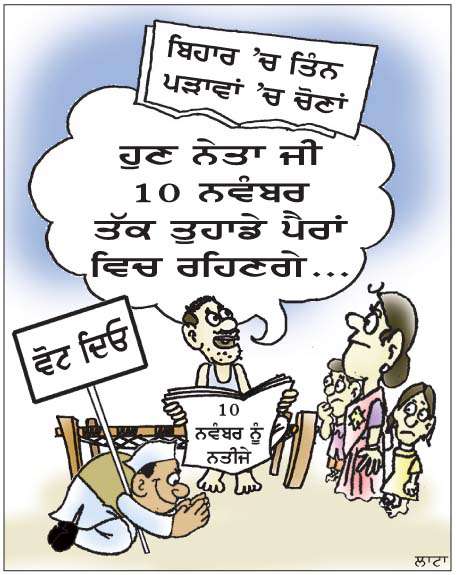 ਬਿਹਾਰ 'ਚ ਤਿੰਨ
ਪੜਾਵਾਂ 'ਚ ਚੋਣਾਂ
ਹੁਣ ਨੇਤਾ ਜੀ
10 ਨਵੰਬਰ
ਤੱਕ ਤੁਹਾਡੇ ਪੈਰਾਂ
ਵਿਚ ਰਹਿਣਗੇ...
ਵੋਟ ਦਿਓ
10
ਨਵੰਬਰ ਨੂੰ
ਨਤੀਜੇ
ਲਾਟਾ